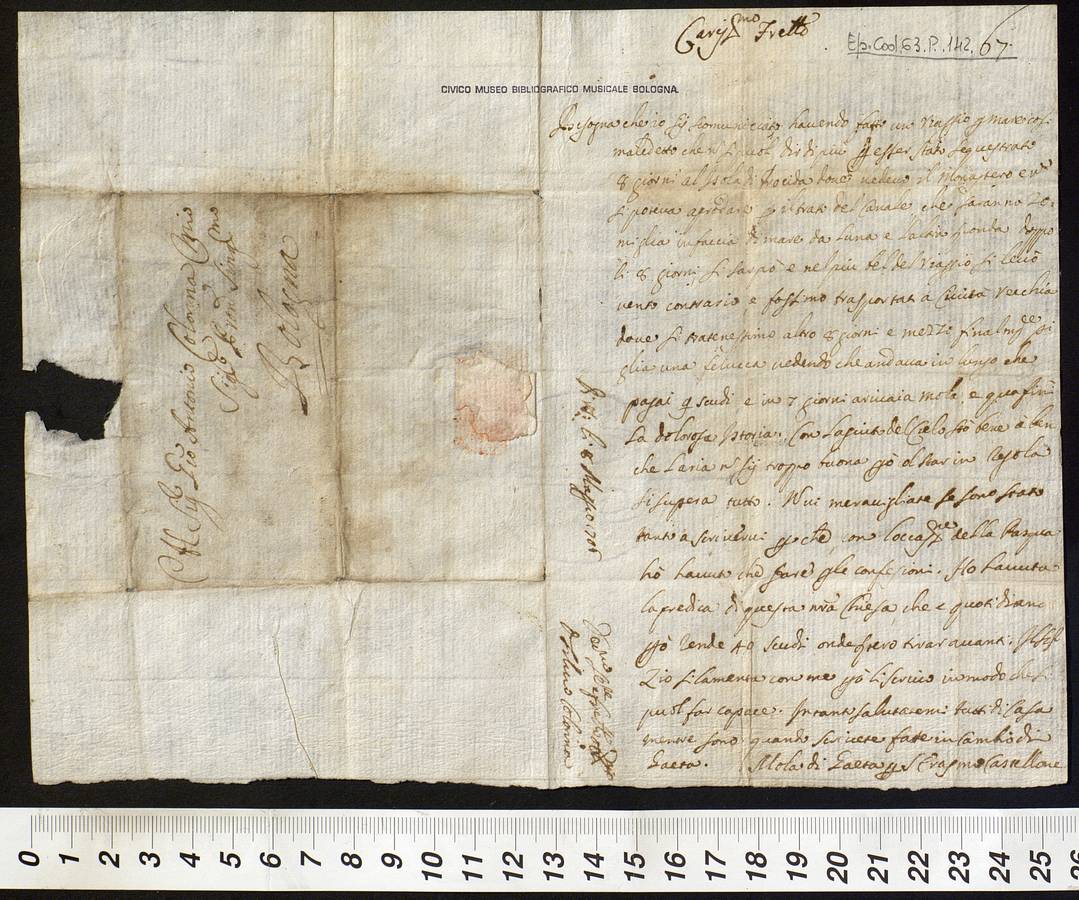 Cariss.mo Frello
Ep. Cod. 63. P. 142. 67.
CIVICO MUSEO BIBLIOGRAFICO MUSICALE BOLOGNA.
Bisogna che io sij scomunicato havendo fatto un viaggio p mare cosi
maledetto che n si puol dir di piu p esser stato sequestrato
8 giorni al Isola di Procida dove il Monastero e n
si poteva aprodare p il trato del Canale che saranno
miglia in faccia di mare da luna e laltra sponda doppo
li 8 giorni si sarpò e nel piu bel del viaggio si levò
vento contrario e fossimo trasportati à Civita Vechia
dove si tratenessimo altro 8 giorni e mezzo finalm.te pi
glia una feluca vedendo che andava in lungo che
pagai 9 scudi e in 7 giorni arivaia mola, e qua finì
la dolorosa Istoria. Con lagiuto del Cielo stò bene à ben
che laria n sij troppo buona pò al star in regola
si supera tutto. N vi meravigliate se sono stato
tanto à scrivervi p che con loccas.ne della Pasqua
hò havuto che fare p le confesioni. Ho havuta
la predica di questa nrã Chiesa che e quotidiana
pò rende 40 scudi onde spero tirar avanti. Il Sig.
Zio si lamenta con me pò li scrivo in modo che si
puol far capace. Intanto salutatemi tutti di Casa
mentre sono quando scrivete fate in Cambio di
Gaeta. Mola di Gaeta p S. Erasmo Castellone
li 8 Maggio 1706
Colonna
All Sig.
Gio Antonio Colonna
Bologna